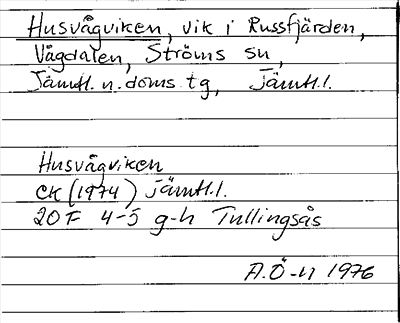 Husvågviken, vik i Russfjärden,
Vågdalen, Ströms sn,
Jämtl. n. doms. tg, Jämtl. l.
Husvågviken
EK (1974) Jämtl. l.
20F 4-5 g-h Tullingsås
A.Ö-n 1976